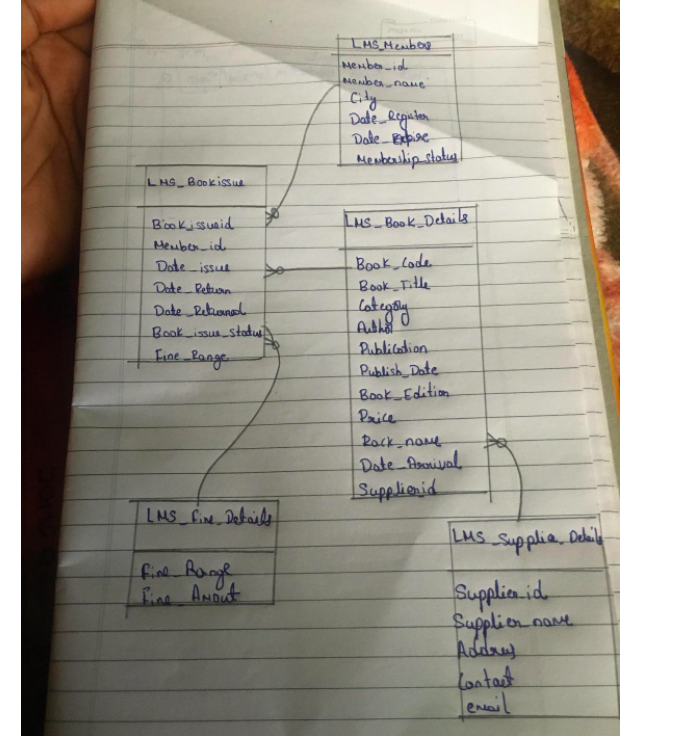 LMS_Members
Member_id
Member_name
City
Date_Register
Date_Expire
Membership_status
LMS_Bookissue
Book_issueid
Member_id
Date_issue
Date_Return
Date_Returned
Book_issue_status
Fine_Range
LMS_Book_Details
Book_Code
Book_Title
Category
Author
Publication
Publish_Date
Book_Edition
Price
Rack_name
Date_Arrival
Supplierid
LMS_Fine_Details
Fine_Range
Fine_Amout
LMS_Supplier_Details
Supplier_id
Supplier_name
Address
Contact
email